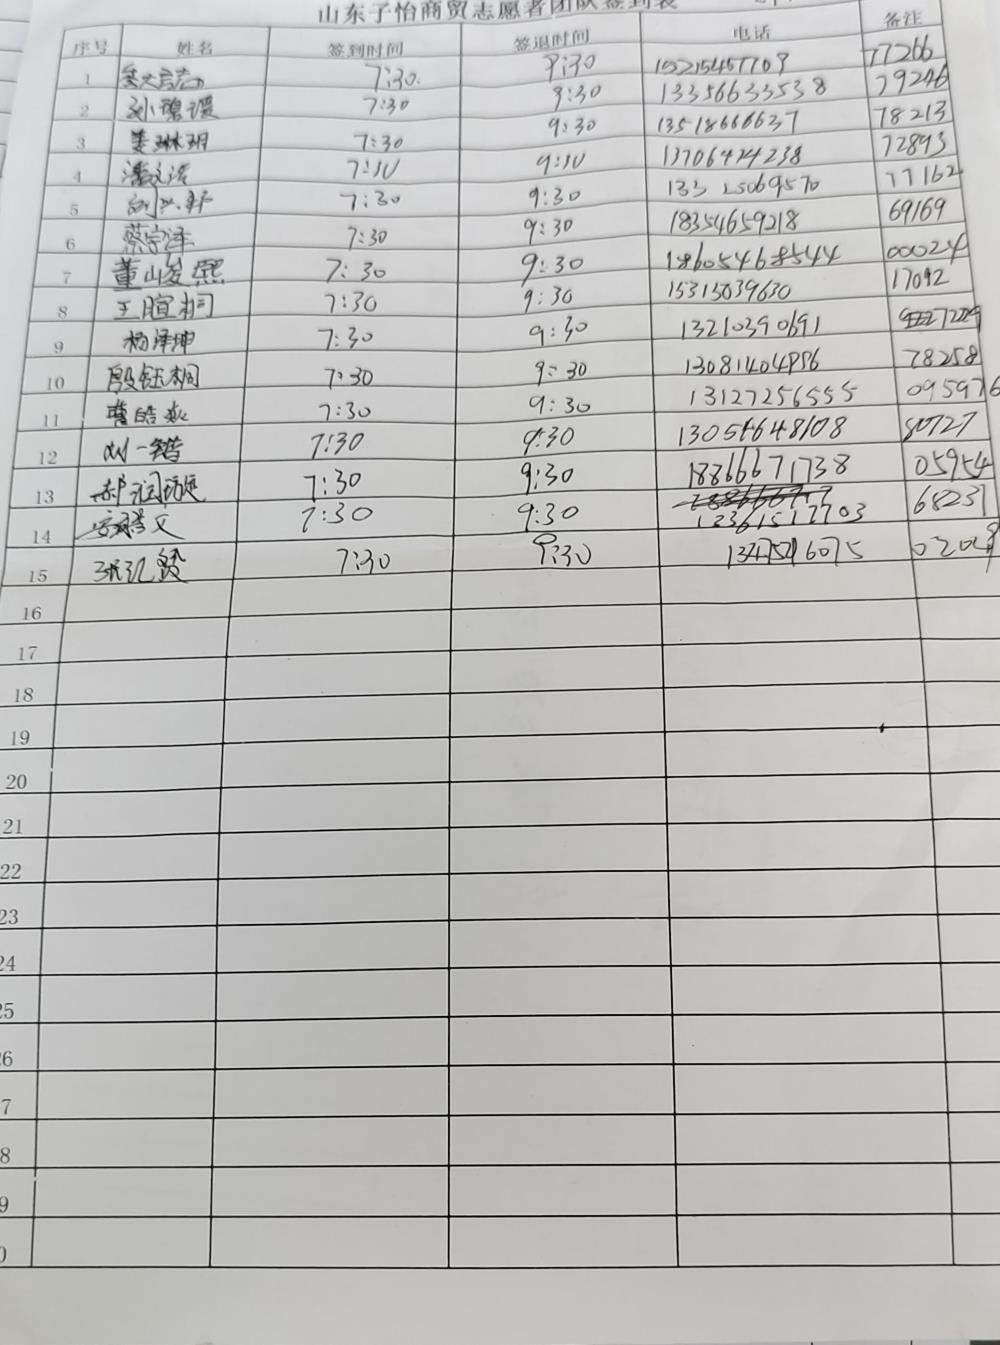 山东子怡商贸志愿者团队签到表
序号 姓名 签到时间 签退时间 电话 备注
1 7:30. 9:30 15215457709 77266
2 孙碧璟 7:30 9:30 13356633538 79246
3 姜琳玥 7:30 9:30 13518666637 78213
4 潘文浩 7:30 9:30 13706424238 72893
5 刘兴轩 7:30 9:30 13325069570 77162
6 蔡宇泽 7:30 9:30 18354659218 69169
7 董山峻熙 7:30 9:30 18605468544 00024
8 王暄桐 7:30 9:30 15315039630 17092
9 杨泽坤 7:30 9:30 13210390691
10 殷钰桐 7:30 9:30 13081404956 78258
11 曹皓焱 7:30 9:30 13127256555 095976
12 刘一诺 7:30 9:30 13056648108 80727
13 郝润琁 7:30 9:30 18866671738 05954
14 7:30 9:30 13361517703 68237
15 7:30 9:30
16
17
18
19
20
21
22
23
24
25
26
7
8
9
0